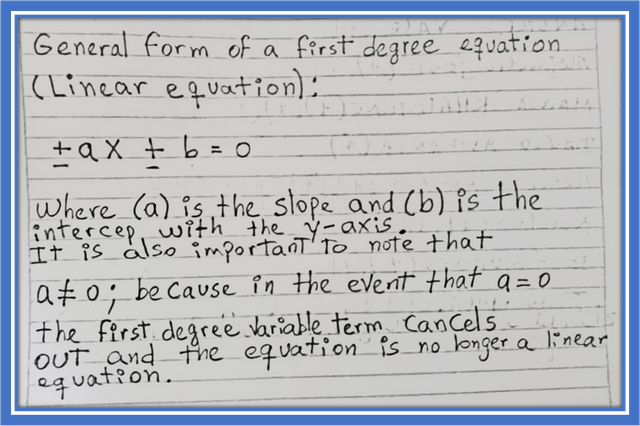 General form of a first degree equation
(Linear equation):
± ax ± b = 0
Where (a) is the slope and (b) is the
intercep with the y-axis.
It is also important to note that
a ≠ 0; because in the event that a = 0
the first degree variable term cancels
OUT and the equation is no longer a linear
equation.